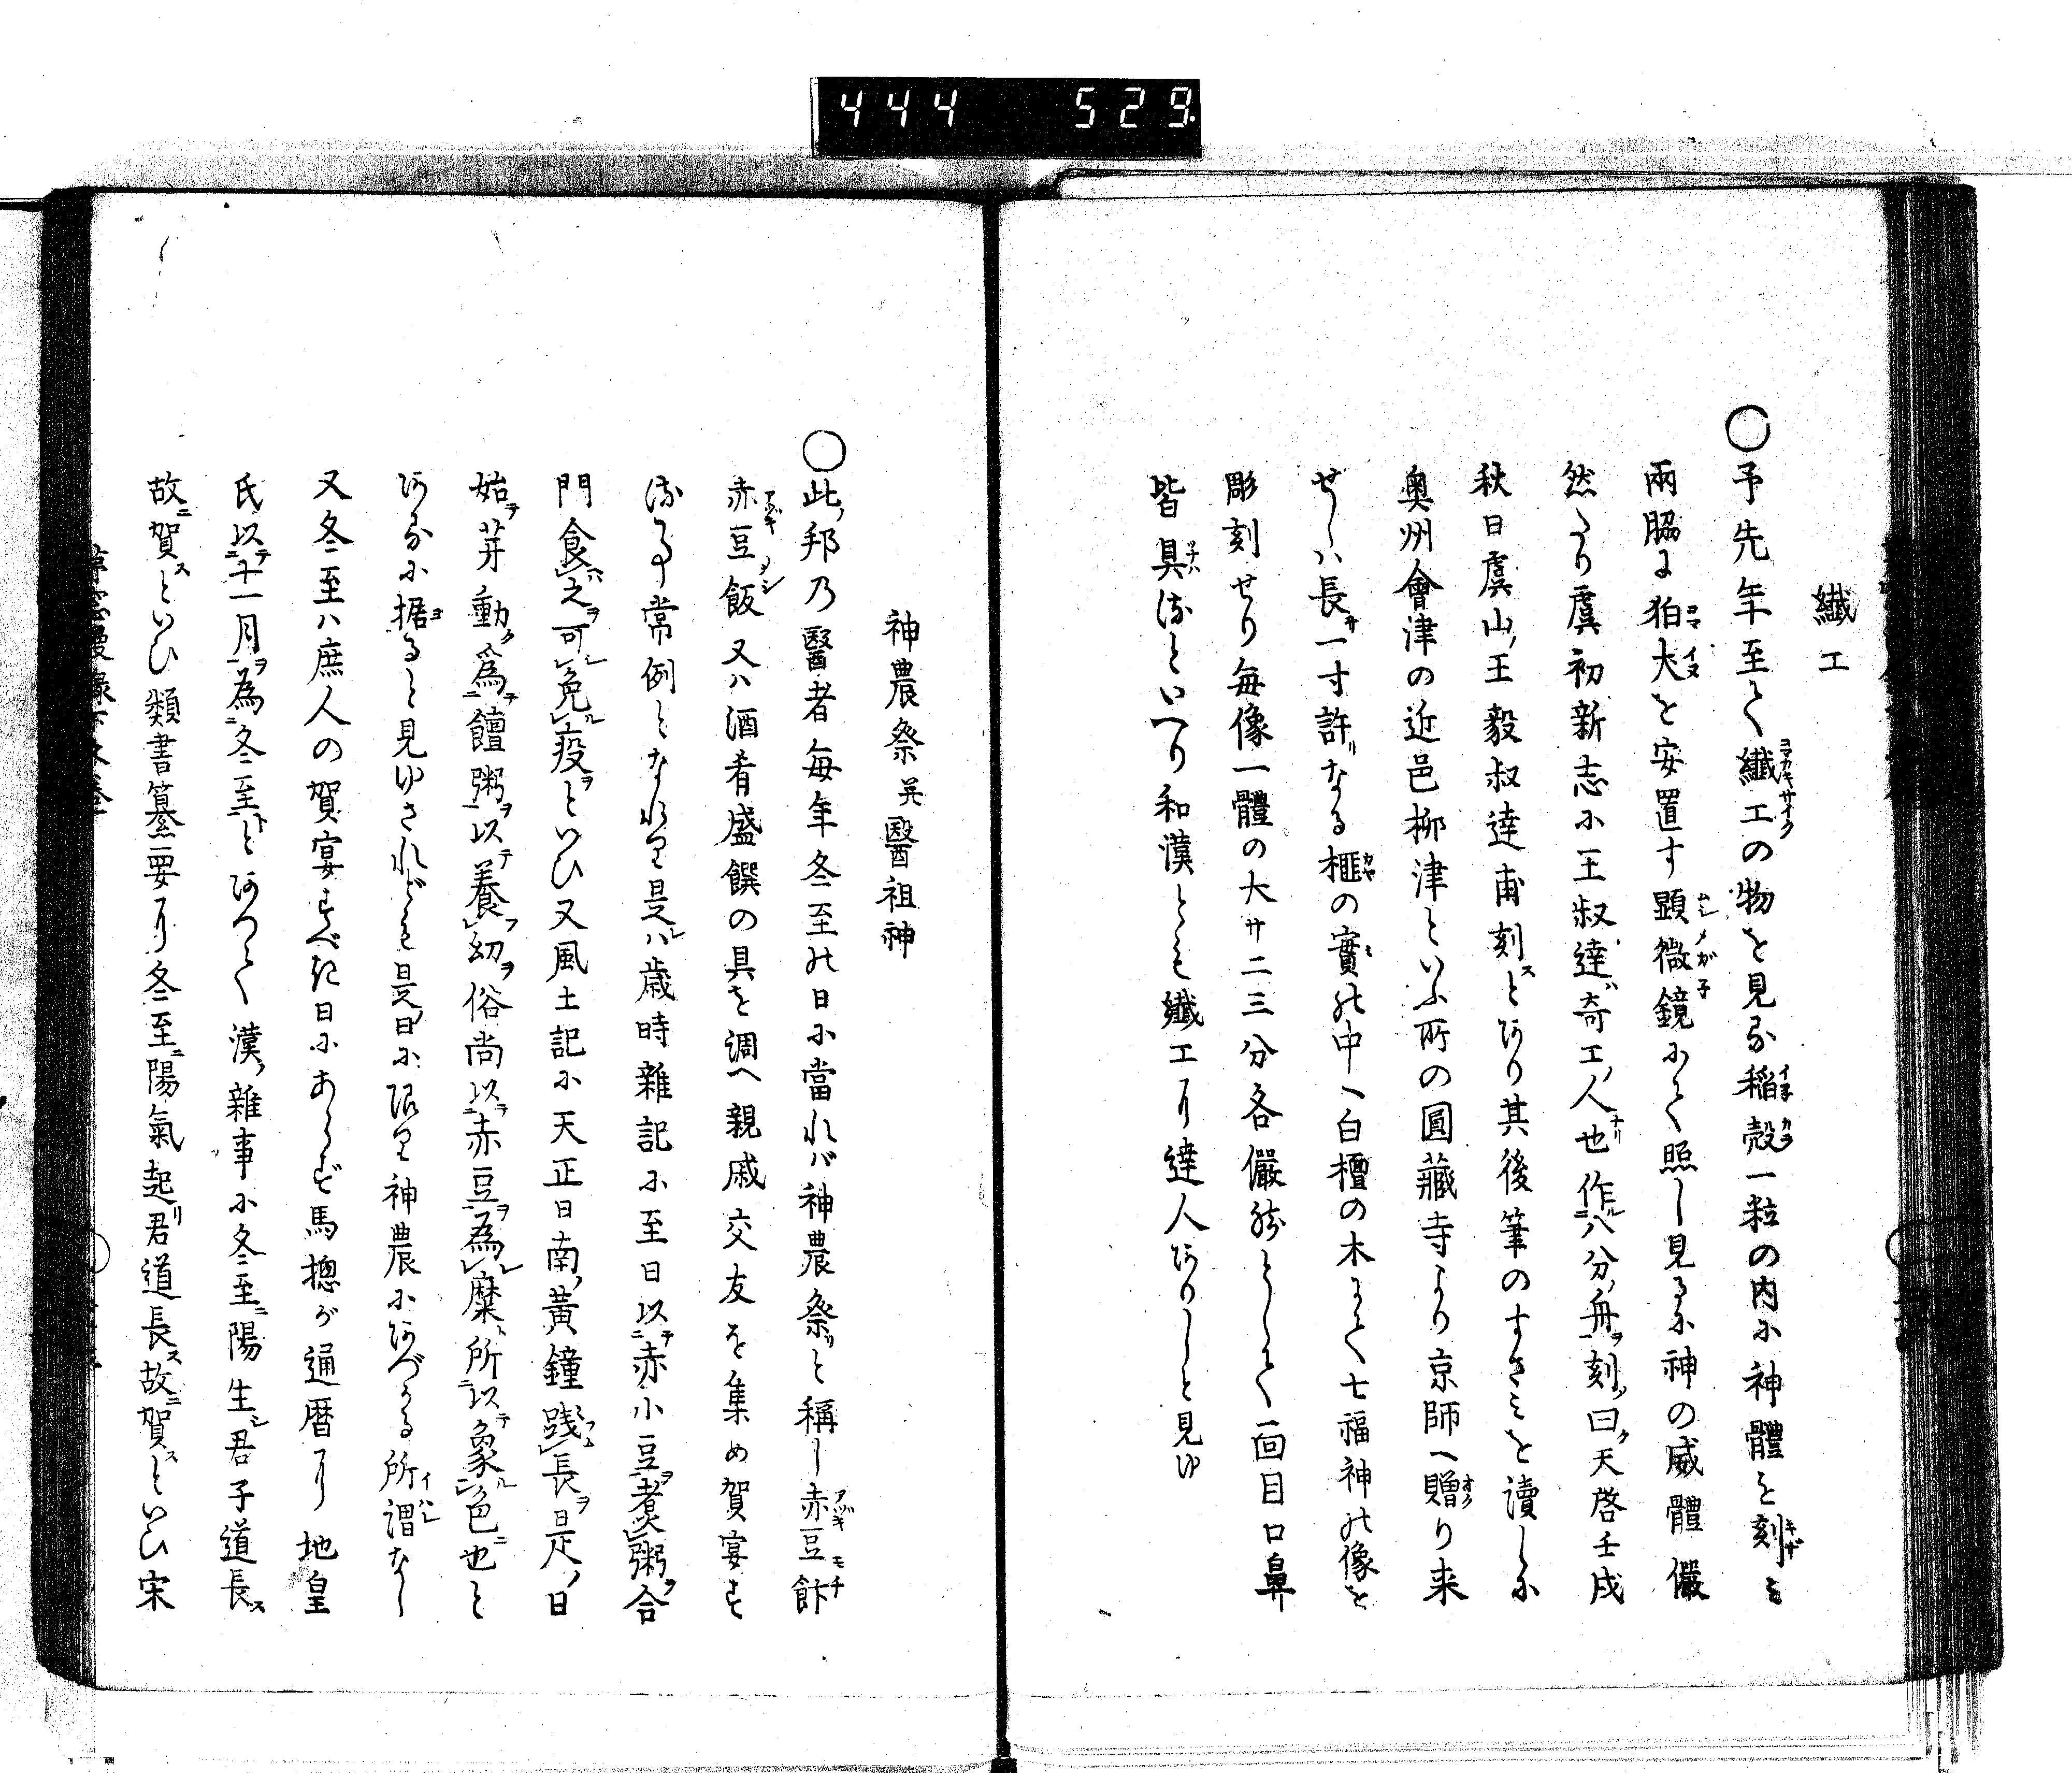 444 529
纎工
○予先年至て纎工の物を見る稲殻一粒の内に神體を刻ミ
兩脇に狛犬を安置す顕微鏡にて照し見るに神の威體儼
然たり虞初新志に王叔達奇工人也作八分舟刻曰天啓壬戌
秋日虞山王毅叔達甫刻とあり其後筆のすさミを讀しに
奥州會津の近邑柳津といふ所の圓藏寺より京師へ贈り来
せしハ長サ一寸許なる榧の實の中へ白檀の木にて七福神の像を
彫刻せり毎像一體の大サ二三分各儼然として面目口鼻
皆具るといへり和漢とも纎工の達人ありしと見ゆ
神農祭并醫祖神
○此邦乃醫者毎年冬至の日に當れバ神農祭りと稱し赤豆餅
赤豆飯又ハ酒肴盛饌の具を調へ親戚交友を集め賀宴す
る事常例となれり是ハ歳時雜記に至日以赤小豆煮粥合
門食之可免疫といひ又風土記に天正日南黄鐘踐長是日
始芽動為饘粥以養幼俗尚以赤豆為糜所以象色也と
あるに据ると見ゆされども是日に限り神農にあづかる所謂なし
又冬至ハ庶人の賀宴すべき日にあらず馬摠が通暦に地皇
氏以十一月為冬至とありて漢雜事に冬至陽生君子道長
故賀といひ類書纂要に冬至陽氣起君道長故賀といひ宋